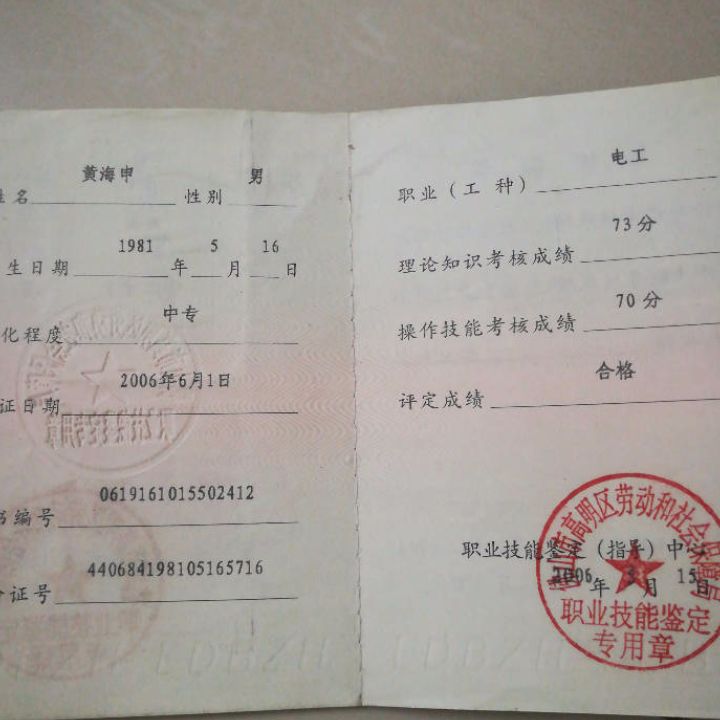 黄海申 男
姓名 性别
1981 5 16
生日期 年 月 日
中专
化程度
2006年6月1日
证日期
0619161015502412
书编号
440684198105165716
份证号
电工
职业（工 种）
73分
理论知识考核成绩
70分
操作技能考核成绩
合格
评定成绩
职业技能鉴定（指导）中心
2006 年 月 15日
山市高明区劳动和社会保障局
职业技能鉴定
专用章